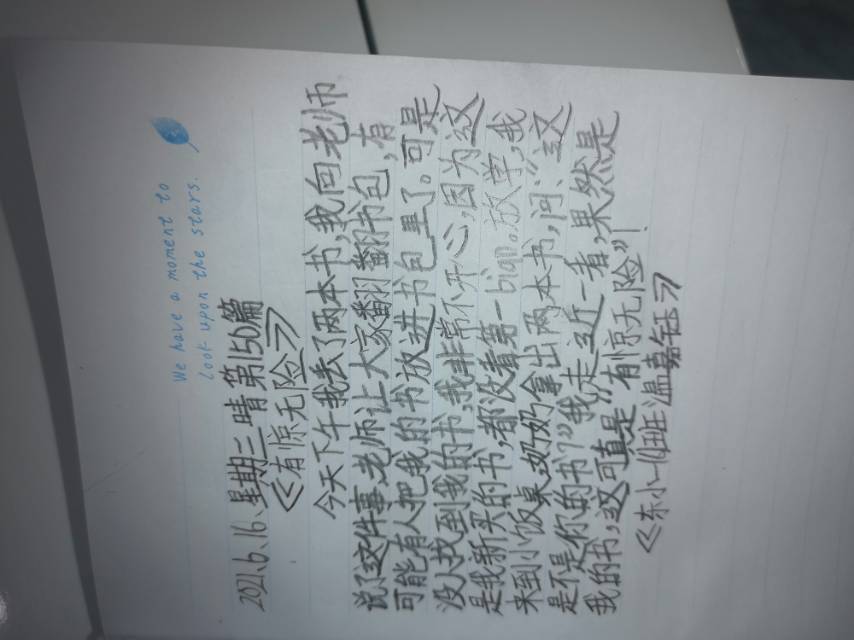 We have a moment to
look upon the stars.
2021.6.16、星期三 晴 第150篇
《有惊无险》
今天下午我丢了两本书，我向老师
说了这件事，老师让大家翻翻书包，有
可能有人把我的书放进书包里了。可是
没找到我的书，我非常不开心，因为这
是我新买的书，都没看第一bian。放学，我
来到小饭桌，奶奶拿出两本书，问：“这
是不是你的书？”我走近一看，果然是
我的书，这可真是“有惊无险”！
《东小一（4）班温嘉钰》